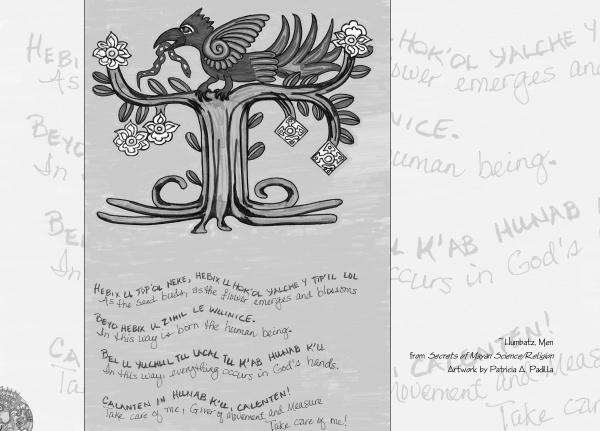 HEBIX U TOP'OL NEKE, HEBIX U HOK'OL YALCHE Y TIP'IL LOL
As the seed buds, as the flower emerges and blossoms
BEYO HEBIX U ZIHIL LE WUINICE.
In this way is born the human being.
BEL U YUCHUL TU LACAL TU K'AB HUNAB K'U
In this way, everything occurs in God's hands.
CALANTEN IN HUNAB K'U, CALENTEN!
Take care of me, Giver of Movement and Measure
Take care of me!
~ Hunbatz Men
from Secrets of Mayan Science/Religion
Artwork by Patricia A. Padilla
HEBI
As
BEYO
In
BEL
In
CA
Ta
HOK'OL YALCHE Y
ower emerges and
NICE.
uman being.
K'AB HUNAB
ccurs in God's
CALENTEN!
Movement and Meas
Take car